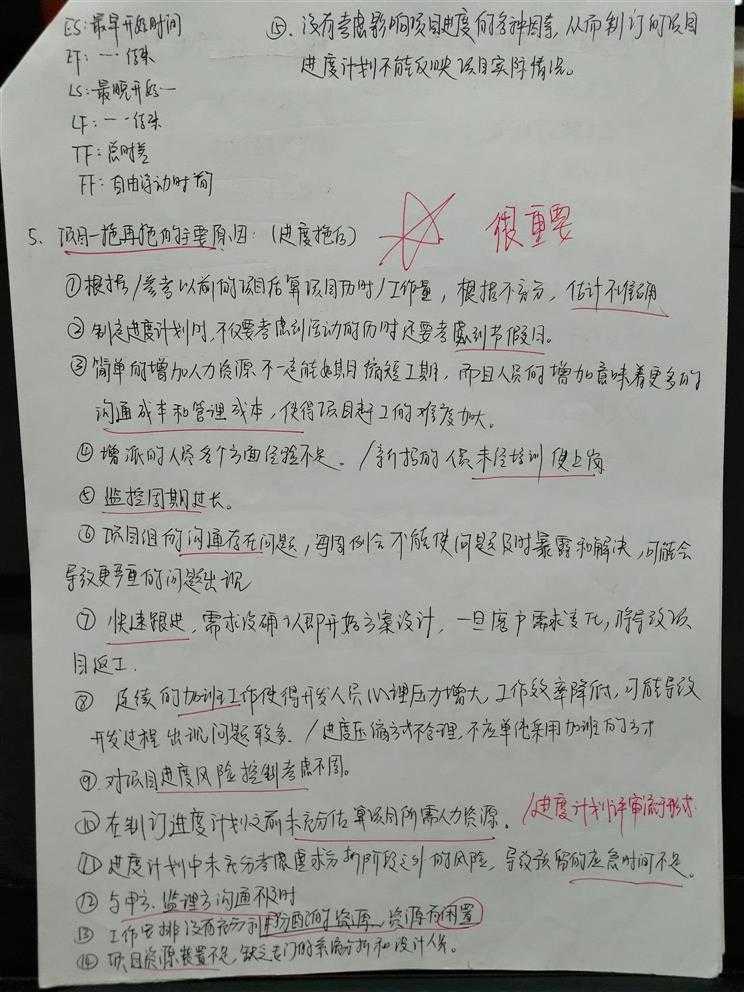 ES:最早开始时间
EF:一一结束
LS:最晚开始一
LF:一一结束
TF:总时差
FF:自由浮动时间
⑮.没有考虑影响项目进度的各种因素,从而制订的项目
进度计划不能反映项目实际情况。
5、项目一拖再拖的主要原因:(进度拖后)
很重要
①根据/参考以前的项目估算项目历时/工作量,根据不充分,估计不准确
②制定进度计划时,不仅要考虑到活动的历时还要考虑到节假日。
③简单的增加人力资源不一定能如期缩短工期,而且人员的增加意味着更多的
沟通成本和管理成本,使得项目赶工的难度加大。
④增派的人员各个方面经验不足。/新招的人员未经培训便上岗
⑤监控周期过长。
⑥项目组的沟通存在问题,每周例会不能使问题及时暴露和解决,可能会
导致更严重的问题出现
⑦快速跟进,需求没确认即开始方案设计,一旦客户需求变化,将导致项
目返工.
⑧连续的加班工作使得开发人员心理压力增大,工作效率降低,可能导致
开发过程出现问题较多./进度压缩方式不合理,不应单纯采用加班的方式
⑨对项目进度风险控制考虑不周。
⑩在制订进度计划之前未充分估算项目所需人力资源。/进度计划评审流于形式.
⑪进度计划中未充分考虑需求分析阶段之外的风险,导致预留的应急时间不足。
⑫与甲方、监理方沟通不及时
⑬工作安排没有充分利用分配的资源,资源有闲置
⑭项目资源装置不足,缺乏专门的系统分析和设计人员。